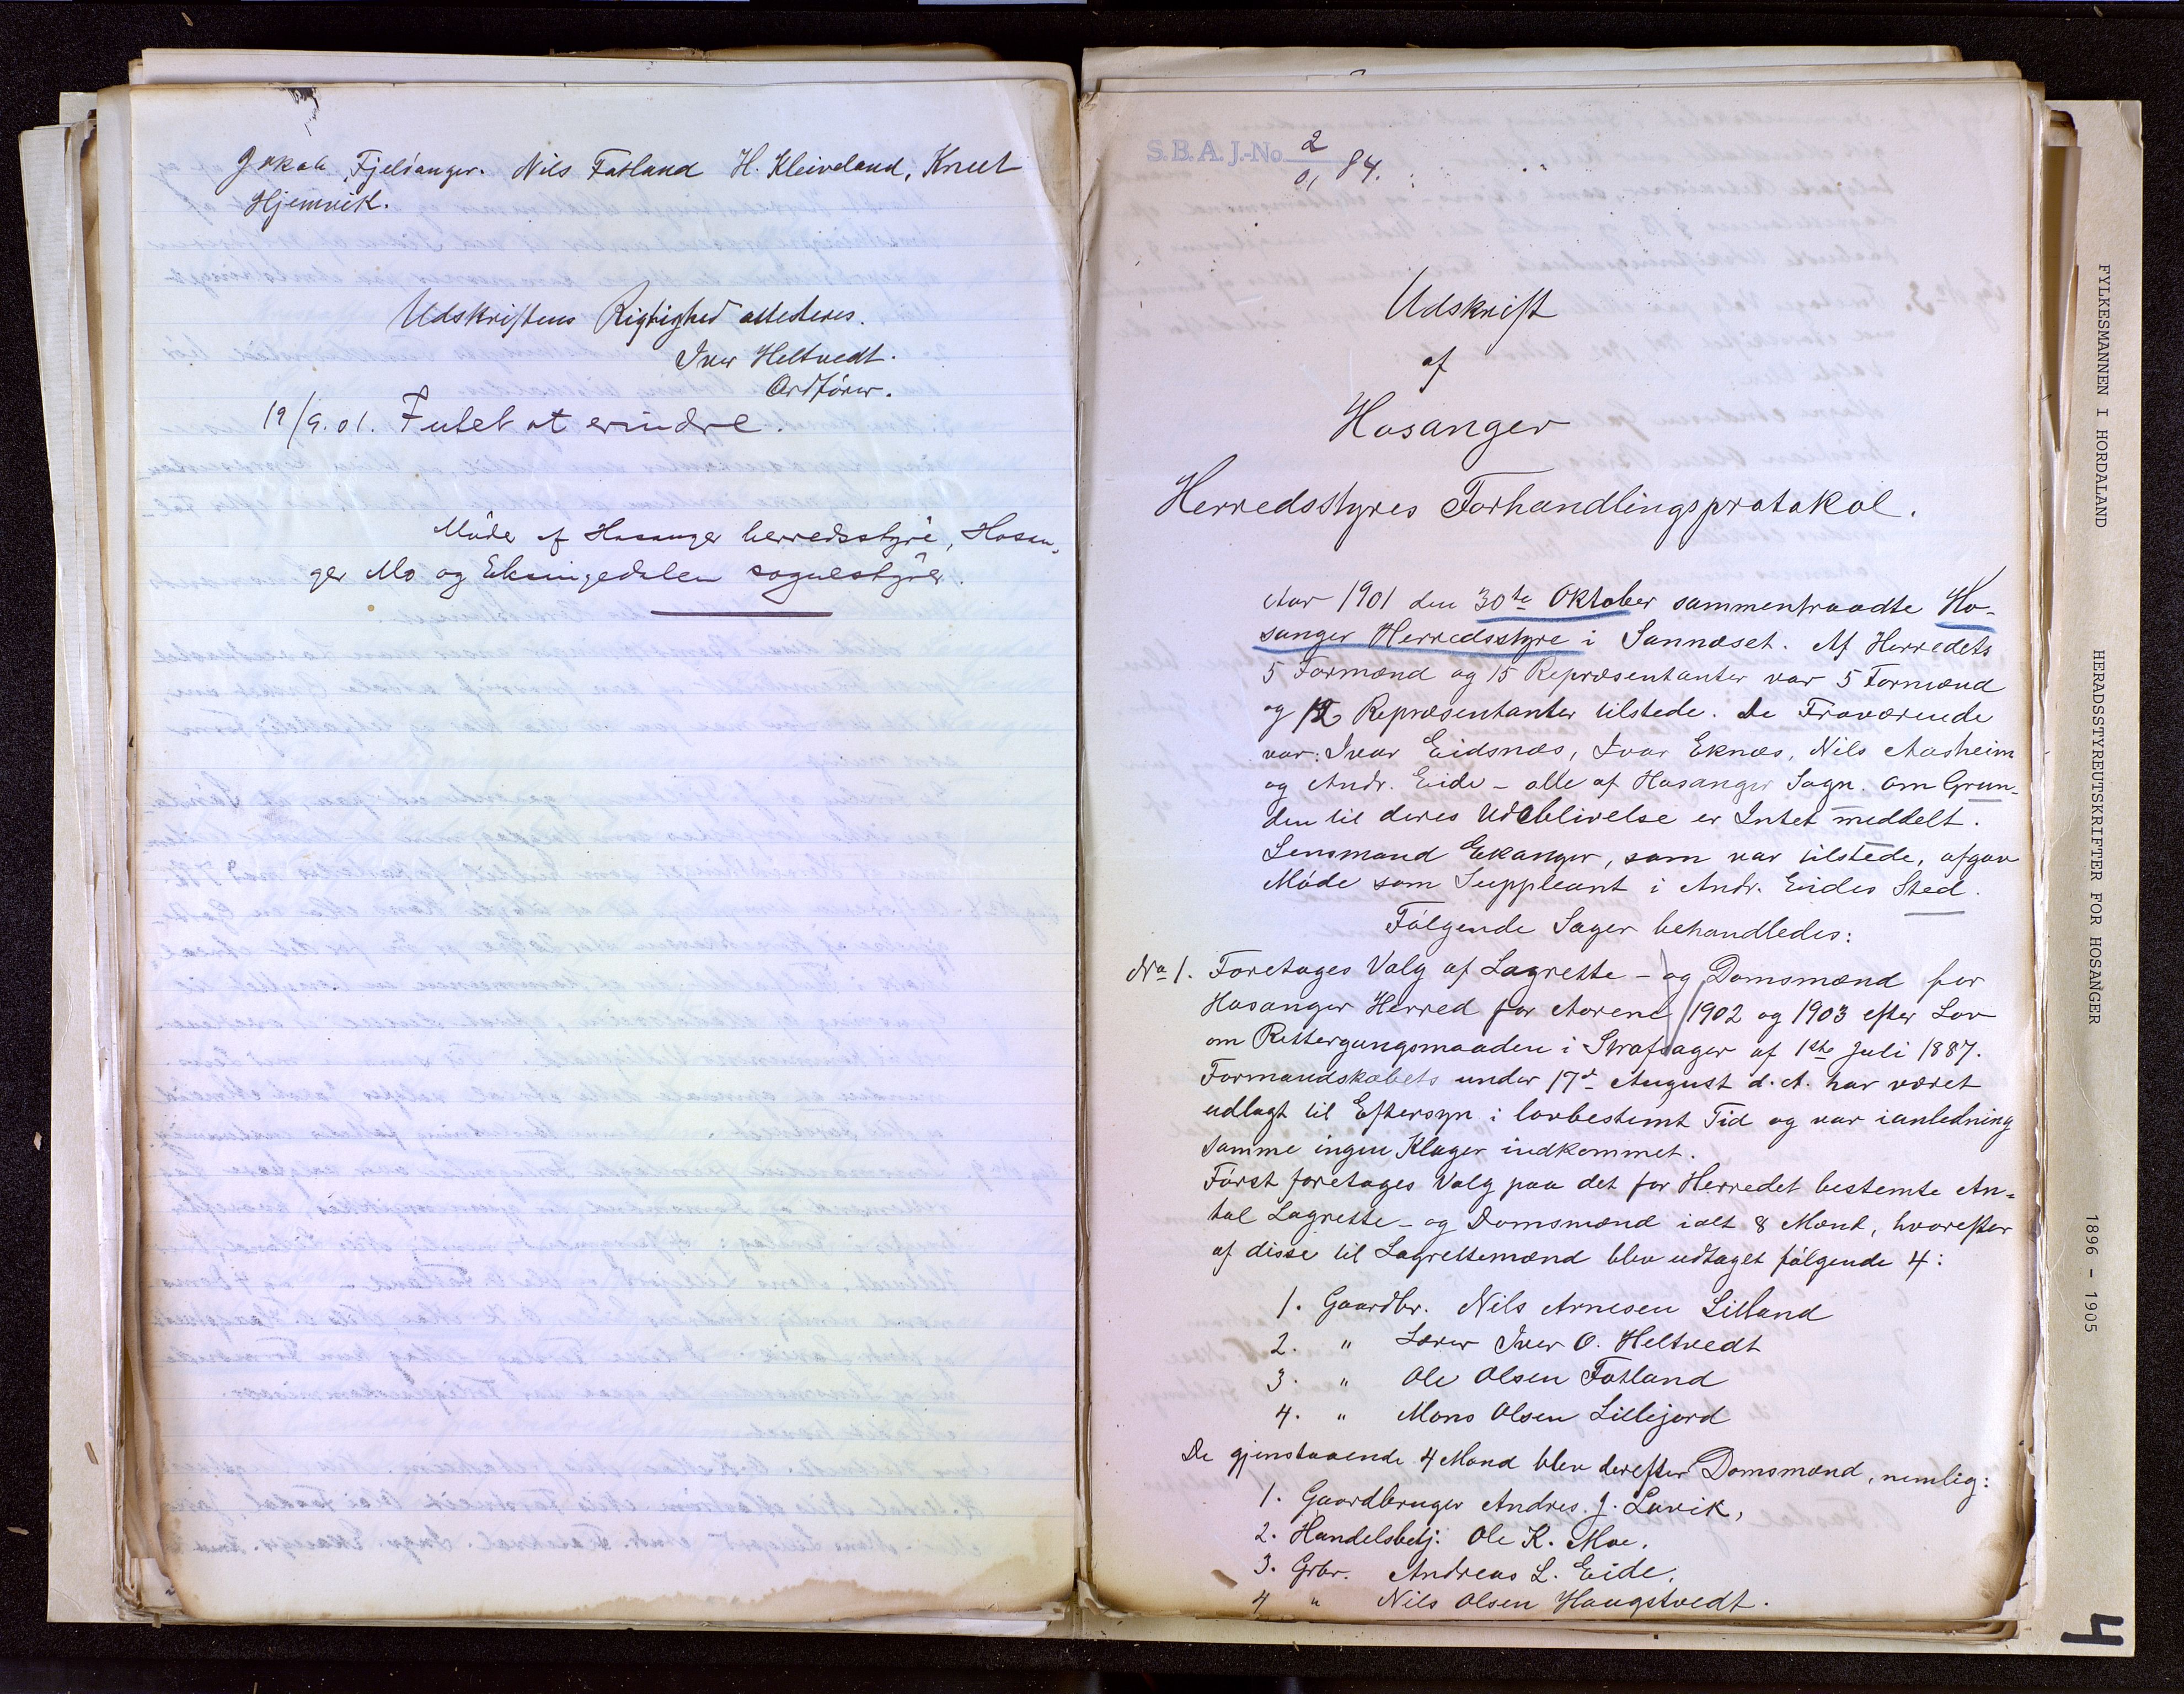 Jakob Fjelsanger. Nils Fatland H. Kleiveland, Knut
Hjemvik.
Udskriftens Rigtighed attesteres.
Iver Heltvedt.
Ordförer.
19/9.01. Intet at erindre.
Möde af Hosanger herredsstyre, Hosan-
ger Mo og Eksingedalen sognestyrer.
S.B.A. J.-No 2/01 84.
Udskrift
af
Hosanger
Herredsstyres Forhandlingsprotokol.
Aar 1901 den 30te Oktober sammentraadte Ho-
sanger Herredsstyre i Sannæset. Af Herredets
5 Formænd og 15 Repræsentanter var 5 Formænd
og 12 Repræsentanter tilstede. De Fraværende
var: Ivar Eidsnæs, Ivar Eknæs, Nils Aasheim
og Andr. Eide - alle af Hosanger Sogn. Om Grun-
den til deres Udeblivelse er Intet meddelt.
Lensmand Ekanger, som var tilstede, afgav
Möde som Suppleant i Andr. Eides Sted.
Fölgende Sager behandledes:
No 1. Foretoges Valg af Lagrette- og Domsmænd for
Hosanger Herred for Aarene 1902 og 1903 efter Lov
om Rettergangsmaaden i Strafsager af 1ste Juli 1887.
Formandskabets under 17d August d. A. har været
udlagt til Eftersyn i lovbestemt Tid og var ianledning
samme ingen Klager indkommet.
Först foretoges Valg paa det for Herredet bestemte An-
tal Lagrette- og Domsmænd ialt 8 Mænd, hvorefter
af disse til Lagrettemænd blev udtaget fölgende 4:
1. Gaardbr. Nils Arnesen Litland
2. " Lærer Iver O. Heltvedt
3. " Ole Olsen Fatland
4. " Mons Olsen Lillejord
De gjenstaaende 4 Mænd blev derefter Domsmænd, nemlig:
1. Gaardbruger Andres J. Lavik,
2. Handelsbetj. Ole K. Moe.
3. Grbr. Andreas L. Eide.
4 " Nils Olsen Haugstvedt.
FYLKESMANNEN I HORDALAND
HERADSSTYREUTSKRIFTER FOR HOSANGER
1896 - 1905
4